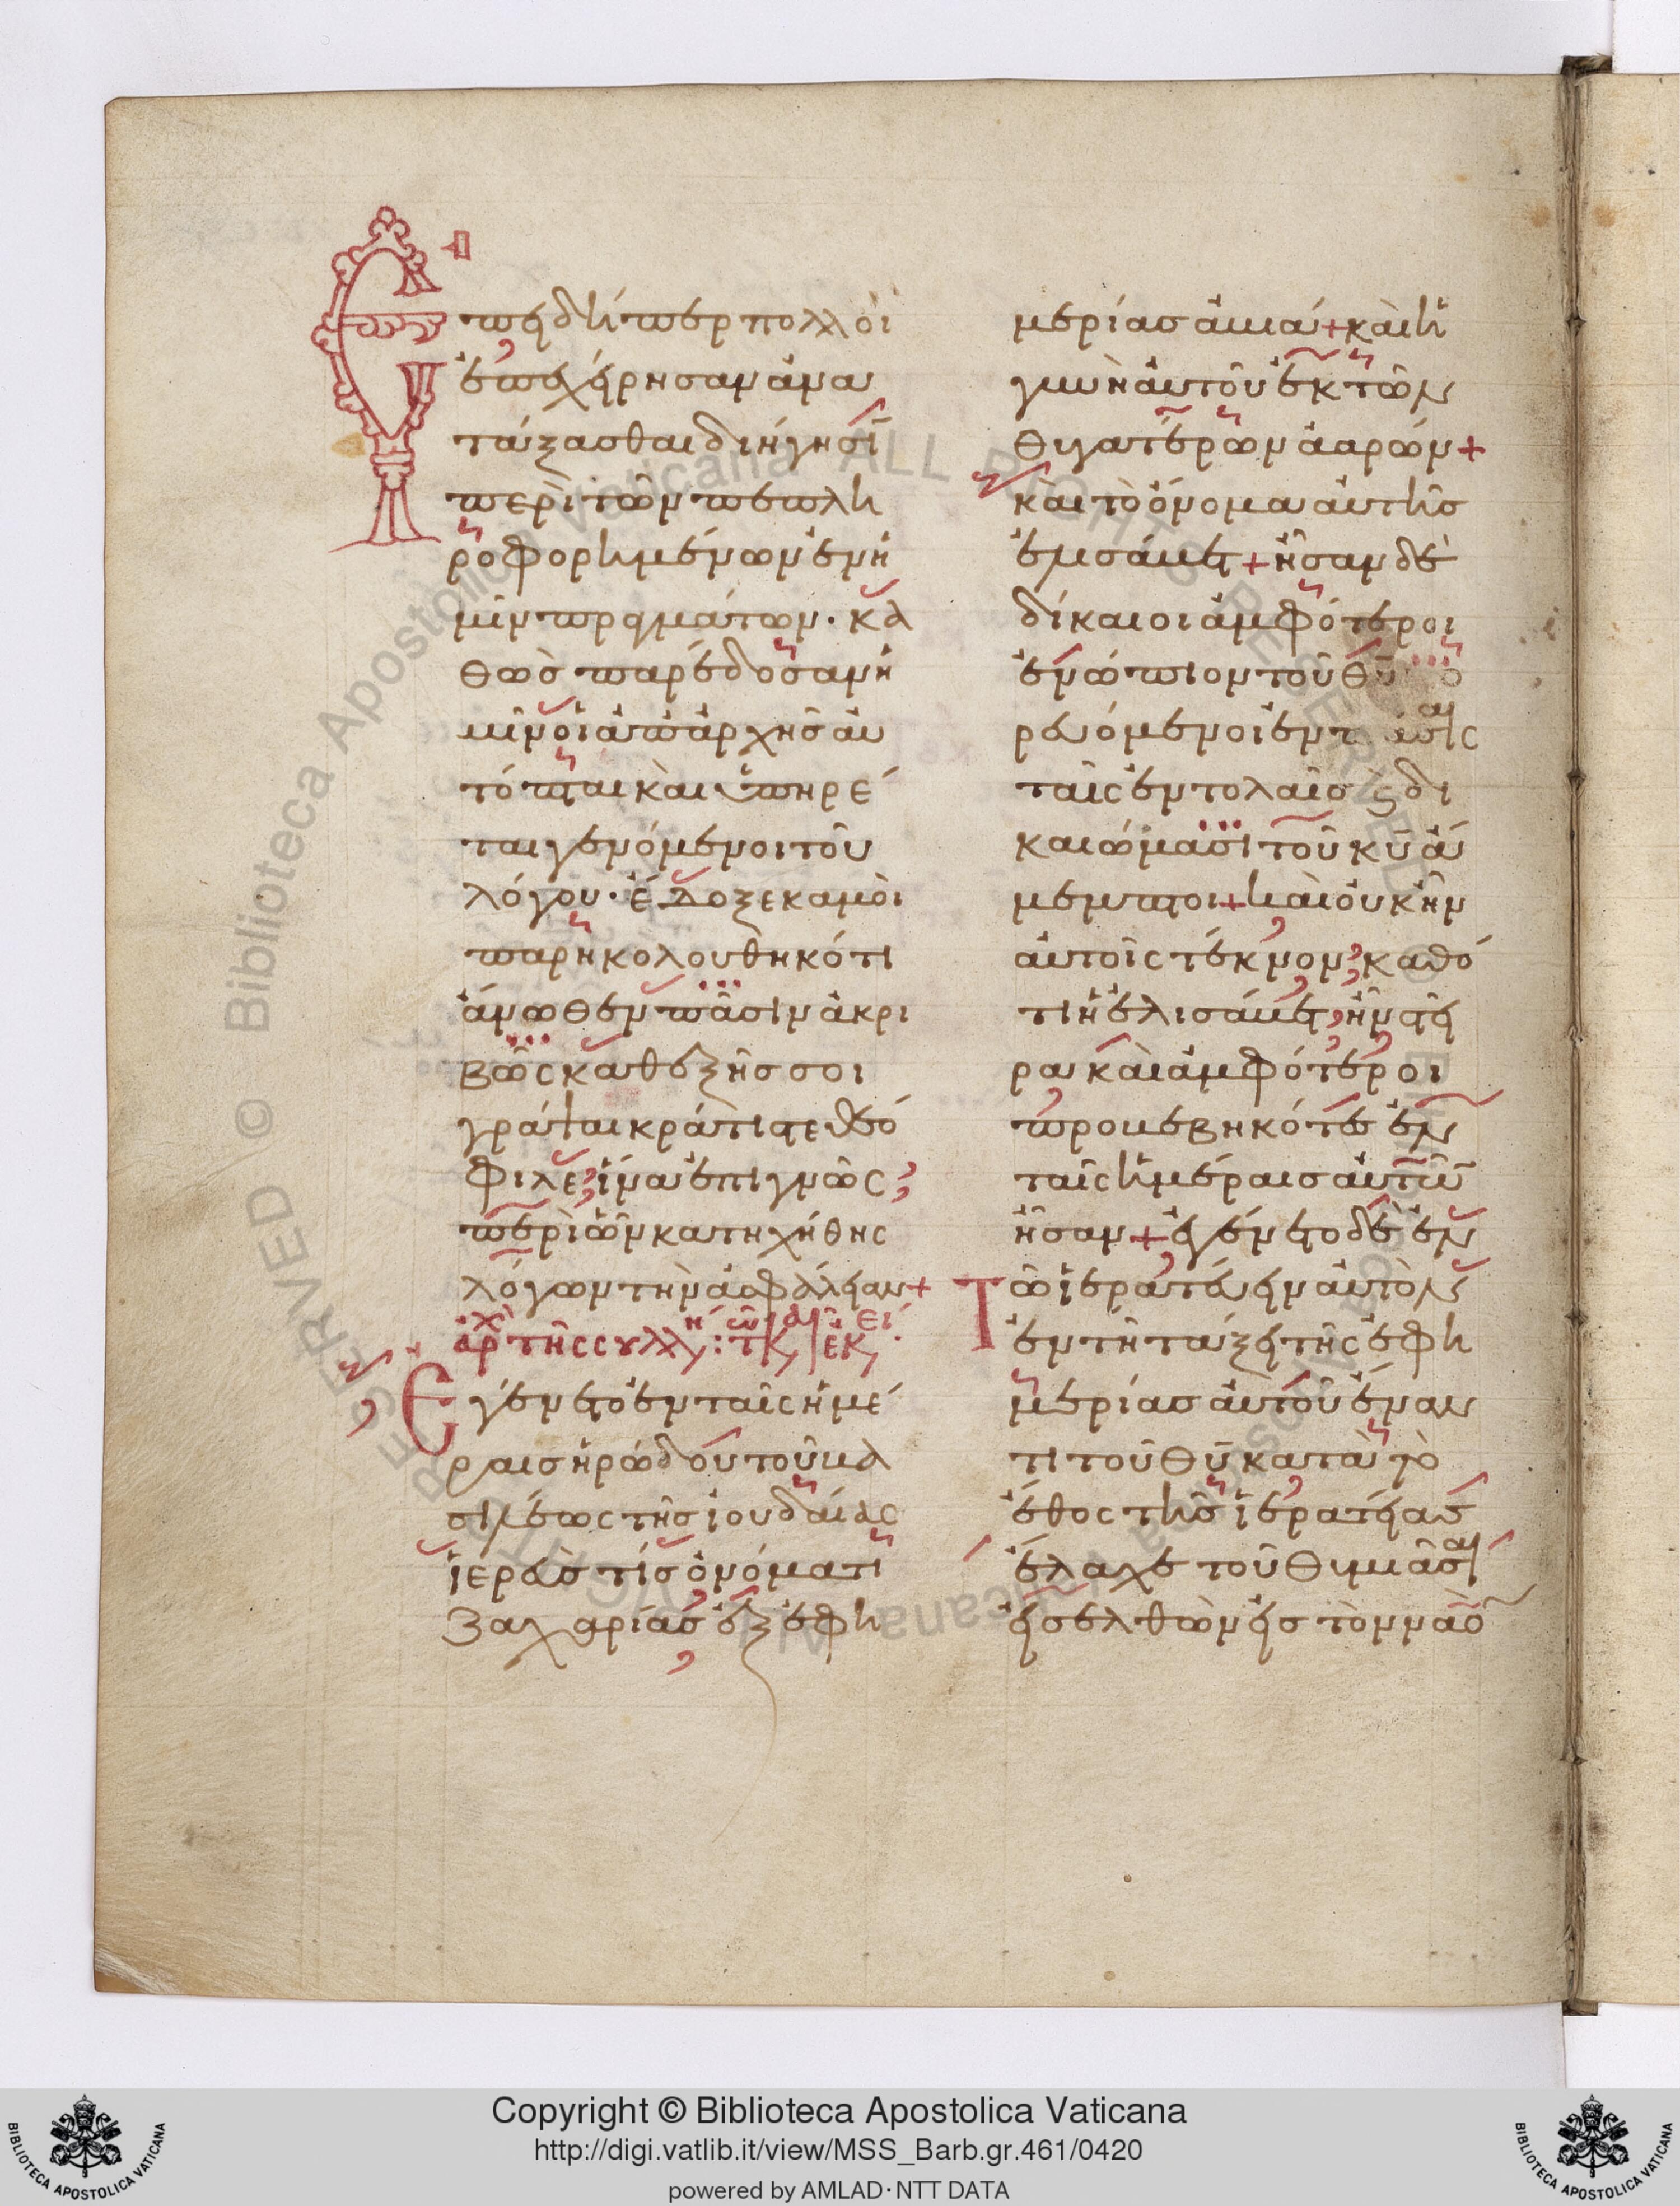 Ἐπειδήπερ πολλοὶ
ἐπεχείρησαν ἀνα
τάξασθαι διήγησϊ
περὶ τῶν πεπλη
ροφορημένων ἐν ἡ
μῖν πραγμάτων· κα
θὼς παρέδοσαν ἡ
μῖν οἱ ἀπ' ἀρχῆς αὐ
τόπται καὶ ὑπηρέ
ται γενόμενοι τοῦ
λόγου· ἔδοξε κἀμοὶ
παρηκολουθηκότι
ἄνωθεν πᾶσιν ἀκρι
βῶς καθεξῆς σοι
γράψαι κράτιστε θεό
φιλε, ἵνα ἐπιγνῶς,
περὶ ὧν κατηχήθης
λόγων τὴν ἀσφάλειαν+
Ἐγένετο ἐν ταῖς ἡμέ
ραις ἡρώδου τοῦ βα
σιλέως τῆς ἰουδαίας
ἱερεὺς τίς ὀνόματι
Ζαχαρίας ἐξ ἐφη
μερίας ἀβιά+ καὶ ἡ
γυνὴ αὐτοῦ ἐκ τῶν
θυγατέρων ἀαρών+
καὶ τὸ ὄνομα αὐτῆς
ἐλισάβετ+ ἦσαν δὲ
δίκαιοι ἀμφότεροι
ἐνώπιον τοῦ θῡ πο
ρευόμενοι ἐν πάσαις
ταῖς ἐντολαῖς ϗ δι
καιώμασι τοῦ κῡ ἄ
μεμπτοι+ καὶ οὐκ ἦν
αὐτοῖς τέκνον, καθό
τι ἡ ἐλισάβετ, ἦν στεῖ
ρα καὶ ἀμφότεροι
προβεβηκότες ἐν
ταῖς ἡμέραις αὐτῶ̄
ἦσαν+ ἐγένετο δὲ ἐν
Τῶ ἱερατεύειν αὐτὸν
ἐν τῆ τάξει τῆς ἐφη
μερίας αὐτοῦ ἔναν
τι τοῦ θῡ κατὰ τὸ
ἔθος τῆς ἱερατείας
ἔλαχε τοῦ θυμιᾶσαι
εἰσελθὼν εἰς τὸν ναὸ
Copyright © Biblioteca Apostolica Vaticana
http://digi.vatlib.it/view/MSS_Barb.gr.461/0420
powered by AMLAD·NTT DATA
BIBLIOTECA APOSTOLICA VATICANA
BIBLIOTECA APOSTOLICA VATICANA